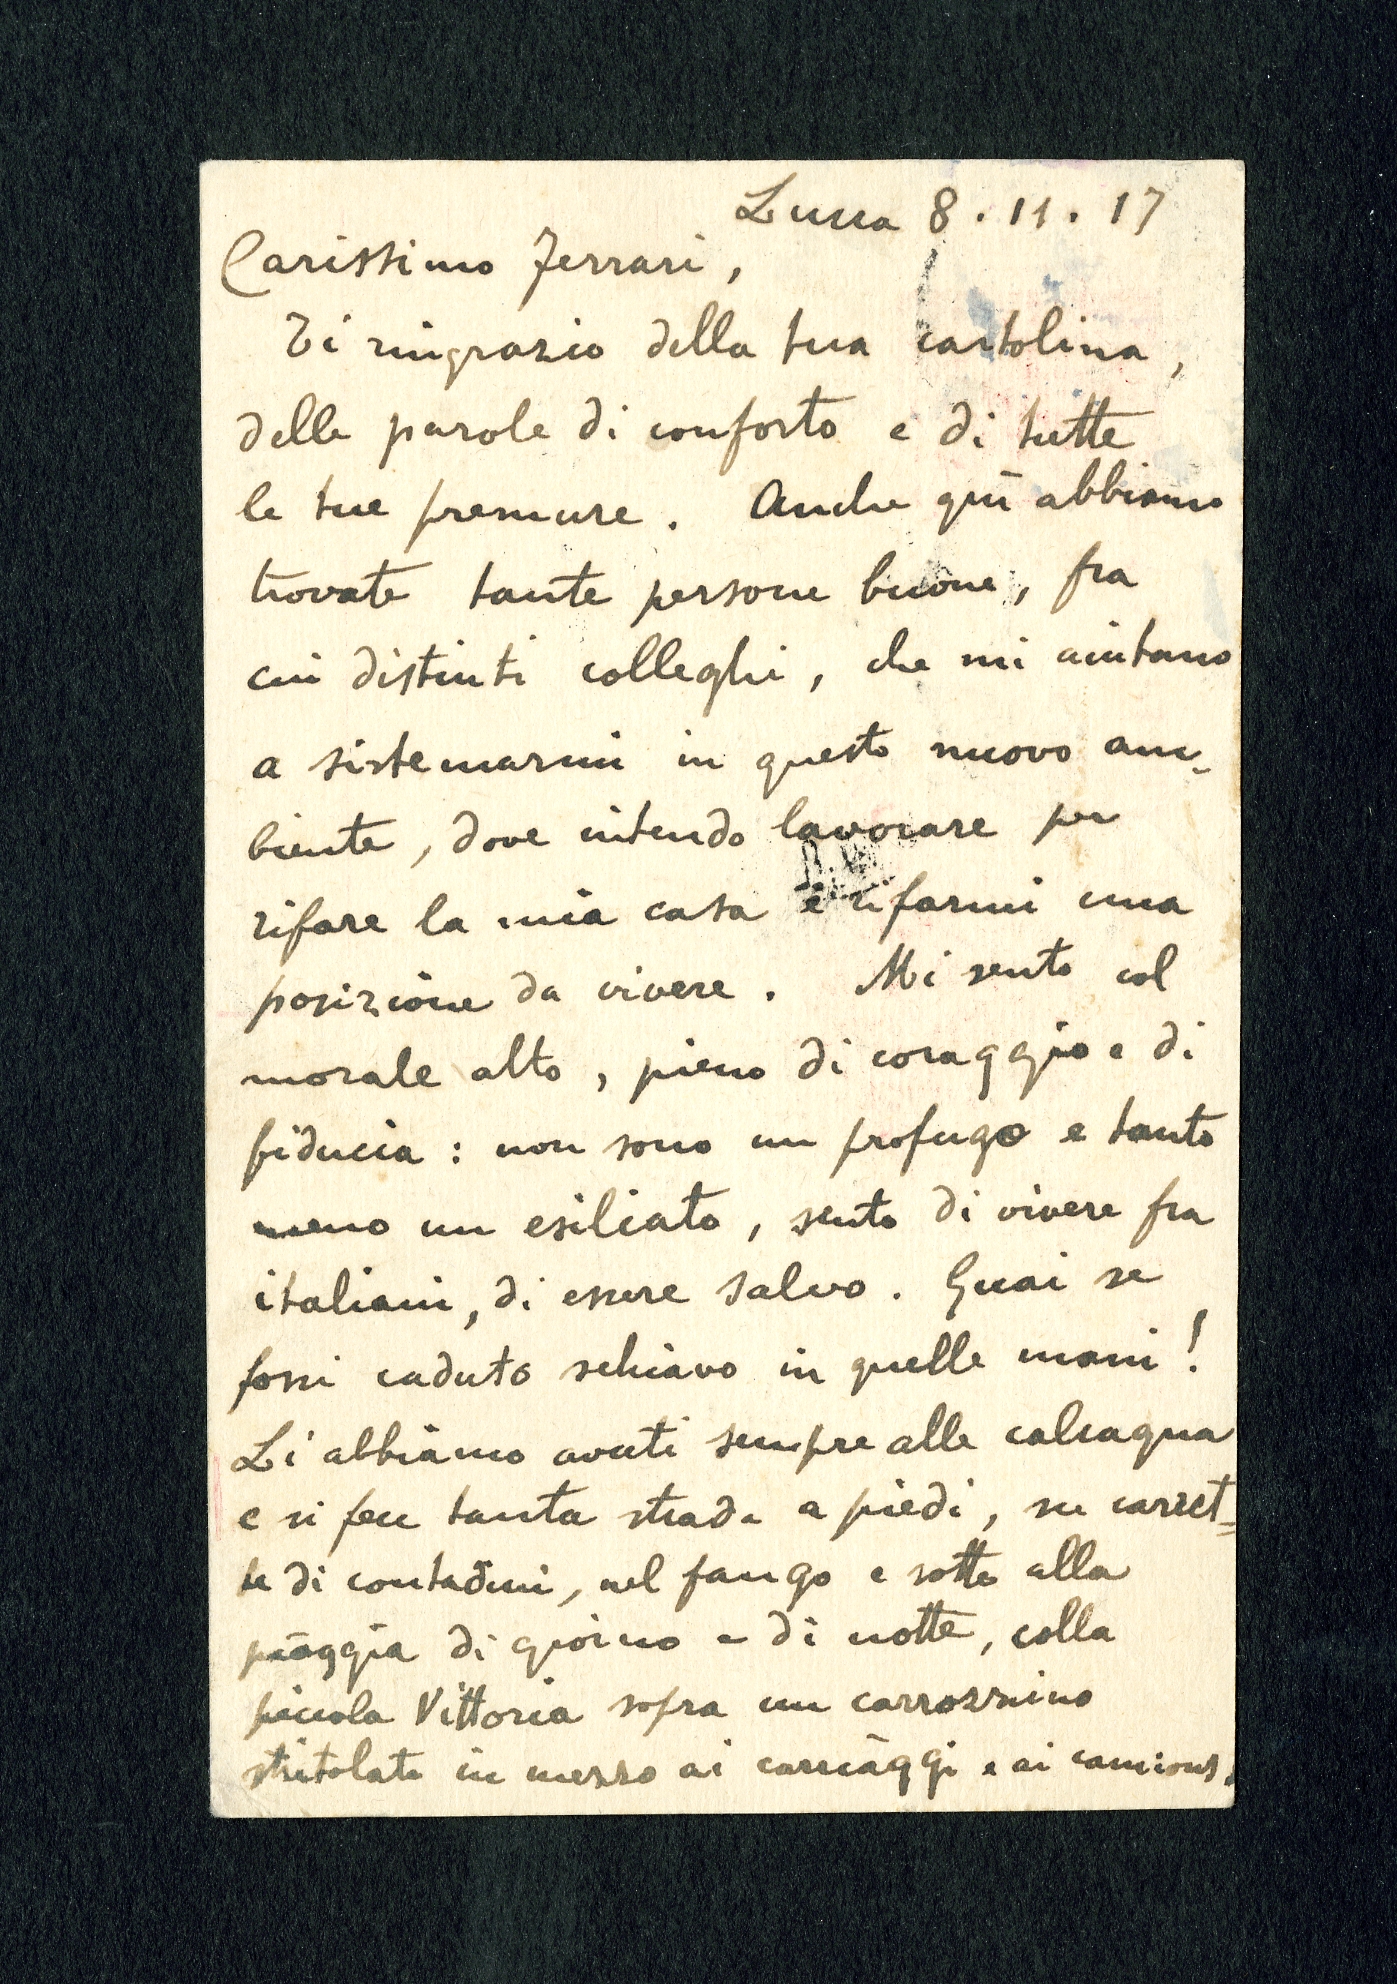 Lucca 8.11.17
Carissimo Ferrari,
Ti ringrazio della tua cartolina,
delle parole di conforto e di tutte
le tue premure. Anche quì abbiamo
trovate tante persone buone, fra
cui distinti colleghi, che mi aiutano
a sistemarmi in questo nuovo am-
biente, dove intendo lavorare per
rifare la mia casa e rifarmi una
posizione da vivere. Mi sento col
morale alto, pieno di coraggio e di
fiducia: non sono un profugo e tanto
meno un esiliato, sento di vivere fra
italiani, di essere salvo. Guai se
fossi caduto schiavo in quelle mani!
Li abbiamo avuti sempre alle calcagna
e si fece tanta strada a piedi, su carret-
te di contadini, nel fango e sotto alla
pioggia di giorno e di notte, colla
piccola Vittoria sopra un carrozzino
stritolato in mezzo ai carriaggi e ai camions.